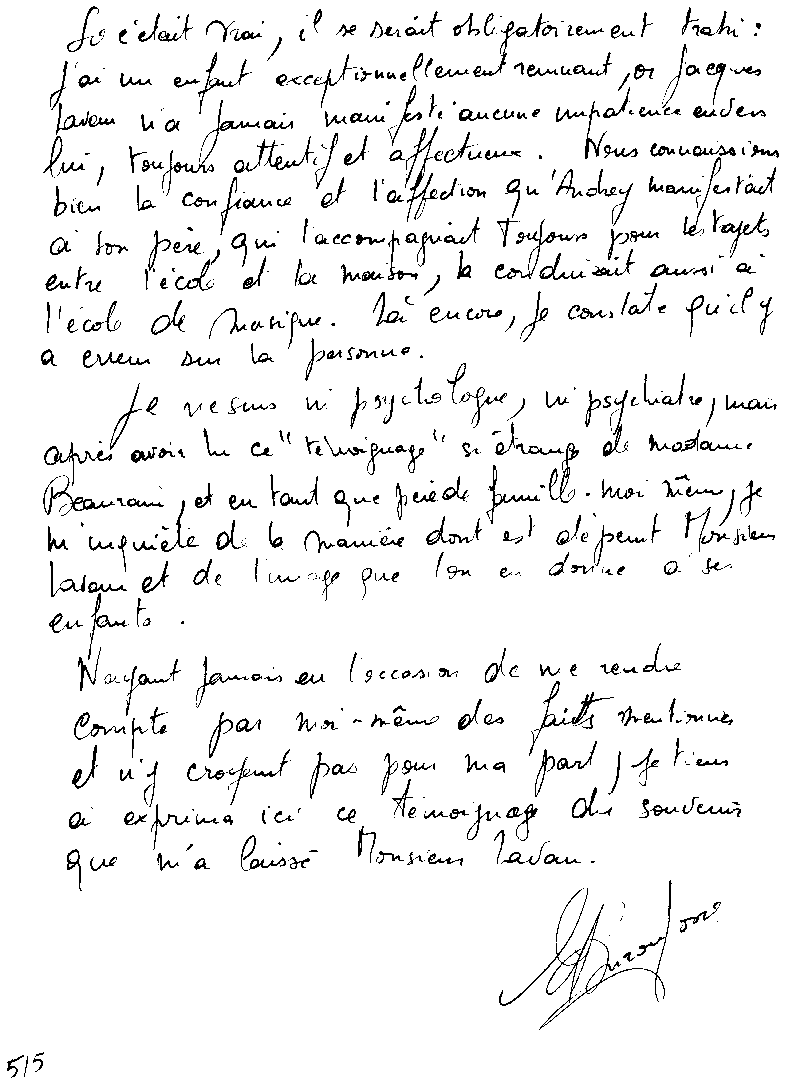 Si c'était vrai, il se serait obligatoirement trahi :
j'ai un enfant exceptionnellement remuant, or Jacques
Lavau n'a jamais manifesté aucune impatience envers
lui, toujours attentif et affectueux. Nous connaissions
bien la confiance et l'affection qu'Audrey manifestait
à son père, qui l'accompagnait toujours pour les trajets
entre l'école et la maison, la conduisait aussi à
l'école de musique. Là encore, je constate qu'il y
a erreur sur la personne.
Je ne suis ni psychologue, ni psychiatre, mais
après avoir lu ce "témoignage" si étrange de madame
et en tant que père de famille moi même, je
m'inquiète de la manière dont est dépeint Monsieur
Lavau et de l'image que l'on en donne à ses
enfants.
N'ayant jamais eu l'occasion de me rendre
compte par moi-même des faits mentionnés
et n'y croyant pas pour ma part, je tiens
à exprimer ici ce témoignage du souvenir
que m'a laissé Monsieur Lavau.
5/5